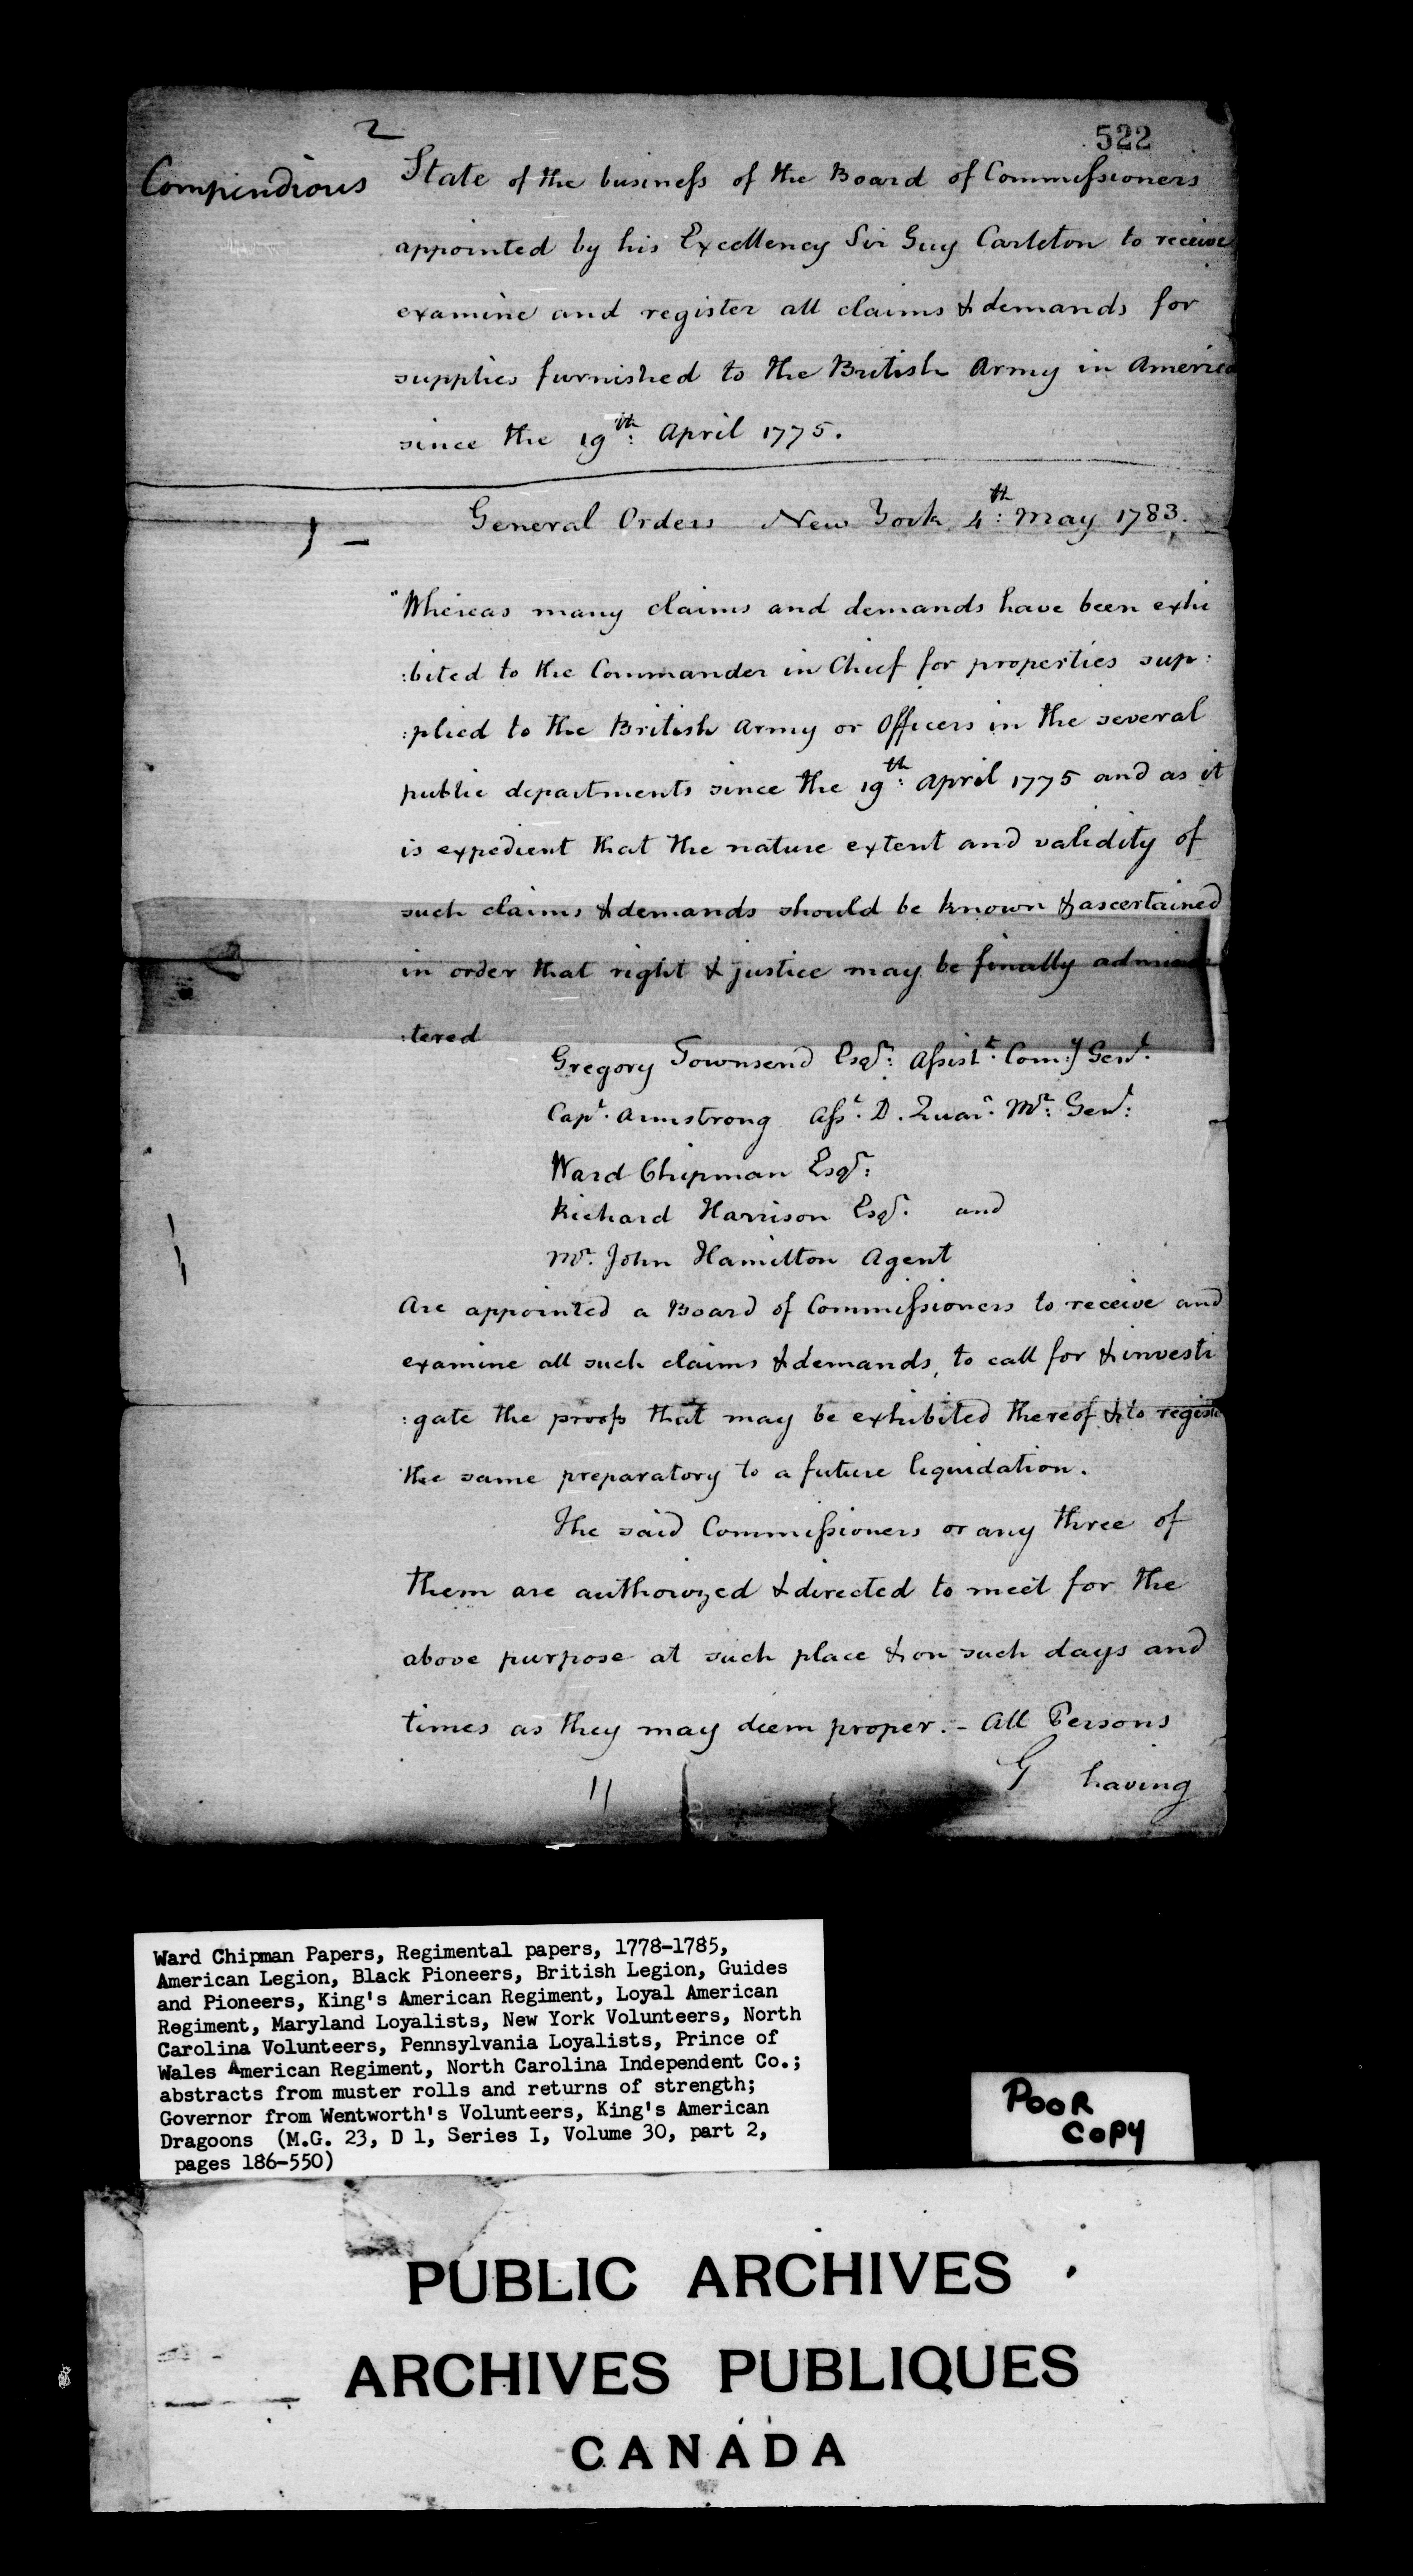 2
522
Compendious State of the business of the Board of Commissioners
appointed by his Excellency Sir Guy Carleton to receive
examine and register all claims & demands for
supplies furnished to the British Army in America
since the 19th: April 1775.
General Orders New York 4th: May 1783.
1 –
"Whereas many claims and demands have been exhi
:bited to the Commander in Chief for properties sup:
:plied to the British Army or Officers in the several
public departments since the 19th: April 1775 and as it
is expedient that the nature extent and validity of
such claims & demands should be known & ascertained
in order that right & justice may be finally adminis
:tered
Gregory Townsend Esqr: Assist: Com:y Genl:
Capt: Armstrong Asst: D. Quar: Mr: Genl:
Ward Chipman Esqr:
Richard Harrison Esqr. and
Mr. John Hamilton Agent
Are appointed a Board of Commissioners to receive and
examine all such claims & demands, to call for & investi
:gate the proofs that may be exhibited thereof & to registe
the same preparatory to a future liquidation.
The said Commissioners or any three of
them are authorized & directed to meet for the
above purpose at such place & on such days and
times as they may deem proper. – All Persons
having
Ward Chipman Papers, Regimental papers, 1778-1785,
American Legion, Black Pioneers, British Legion, Guides
and Pioneers, King's American Regiment, Loyal American
Regiment, Maryland Loyalists, New York Volunteers, North
Carolina Volunteers, Pennsylvania Loyalists, Prince of
Wales American Regiment, North Carolina Independent Co.;
abstracts from muster rolls and returns of strength;
Governor from Wentworth's Volunteers, King's American
Dragoons (M.G. 23, D 1, Series I, Volume 30, part 2,
pages 186-550)
POOR
COPY
PUBLIC ARCHIVES
ARCHIVES PUBLIQUES
CANADA